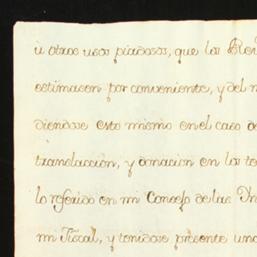 ú otros usos piadosos, que los Rey
estimasen por conveniente, y del m
diendose esto mismo en el caso de
translaccion, y donacion en los to
lo referido en mi Consejo de las In
mi Fiscal, y tenidose presente una